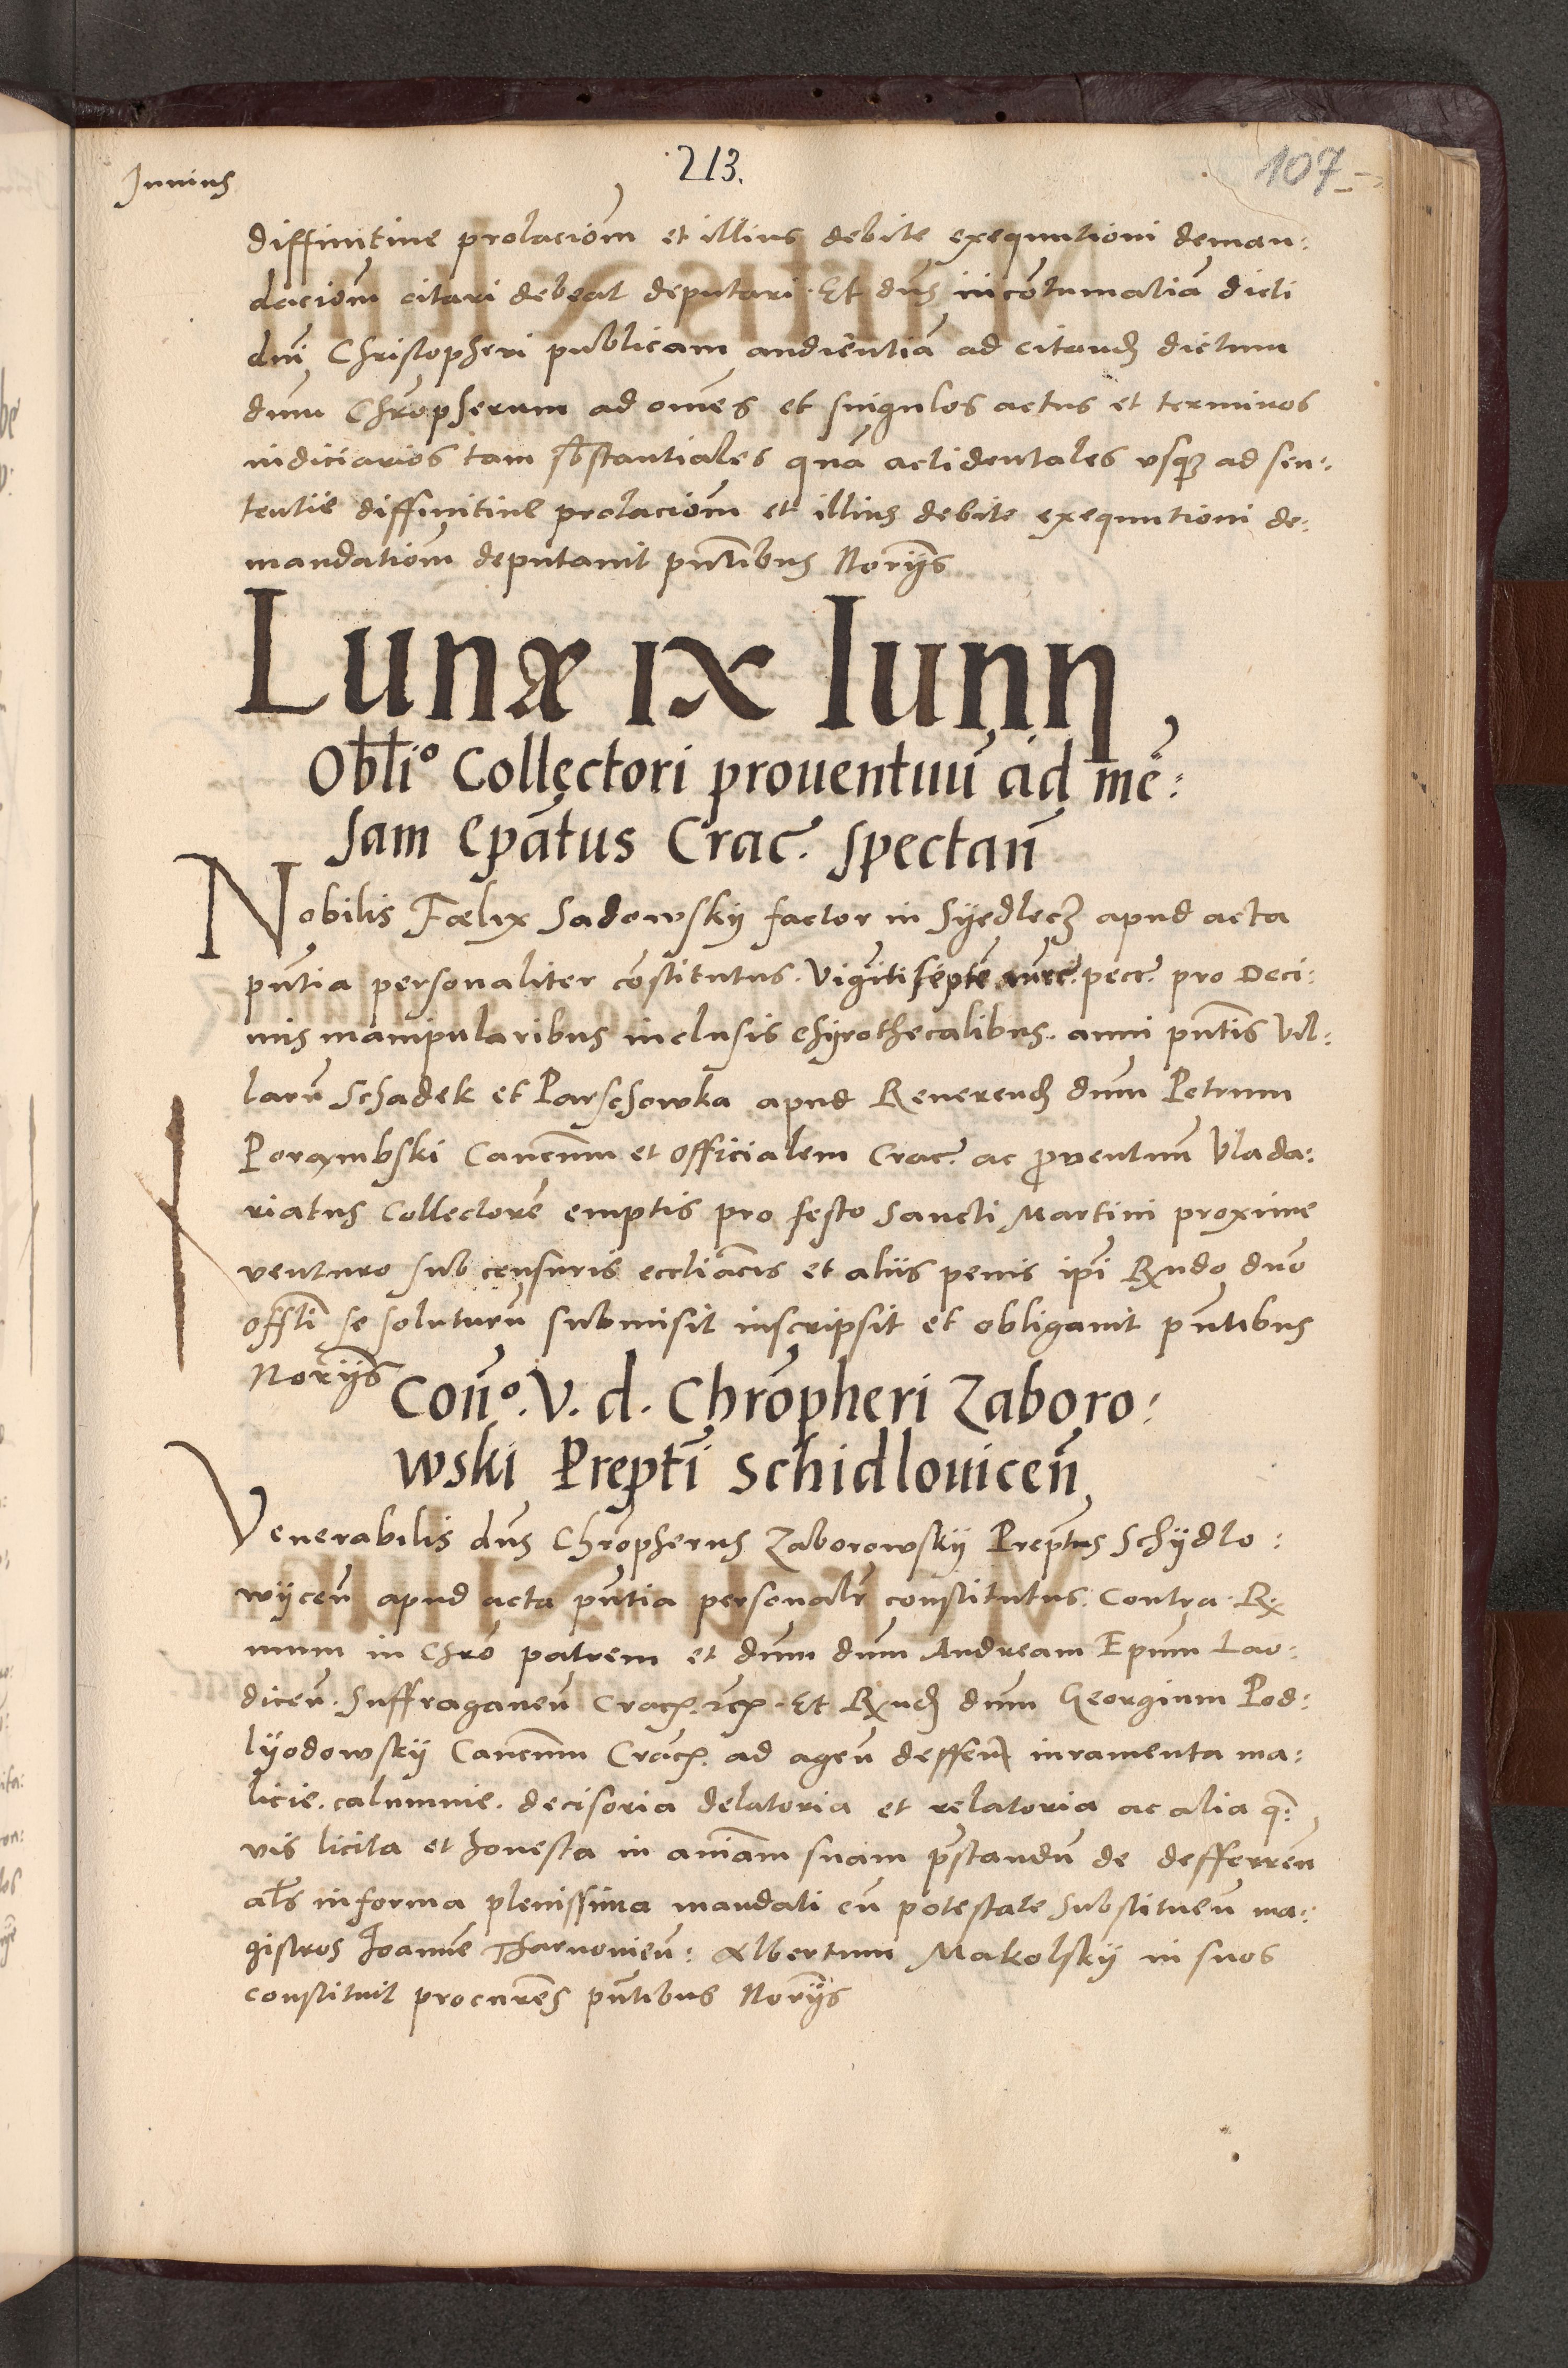 Junius
213.
107
diffinitiue prolacionem et illius debite exequutioni deman:
dacionem citari debeat deputari. Et dns in cotumatia dicti
dni Christopheri publicam audientia ad citand dictum
dnm Chropherum ad omes et singulos actus et terminos
iudiciarios tam sbstantiales qua actidentales vsq ad sen:
tentie diffinitiue prolaciom et illius debite exequutioni de:
mandatiom deputauit pntibus Norijs
Lunæ IX Iunij
Obliº Collectori prouentuu ad mē:
sam Epatus Crac. spectan
Nobilis Fælix Sadowskij factor in Sijedlecz apud acta
pntia personaliter cōstitutus. Viginti septē mrc. pecc. pro Deci:
mis manipularibus inclusis chyrothecalibus. anni pntis Vil:
larū Schadek et Parschowka apud Reuerend dnm Petrum
Porambski Cancnum et Officialem Crac. ac prouentuum Vlada:
riatus Collectorē emptis pro festo Sancti Martini proxime
venturo sub censuris eccliacis et aliis penis ipi Rndo dno
offlti se soluturū submisit inscripsit et obligauit pntibus
Norijs
Conº. V. d. Chropheri Zaboro:
wski Prepti Schidlouicen
Venerabilis dns Chropherus Zaborowskij Preptus Schijdlo:
wijcen apud acta pntia personalr constitutus. Contra. R
mum in Chro patrem et dnm dnm Andream Epum Lao:
dicen. Suffraganeu Crac. Et Rnd dnm Georgium Pod:
lyodowskij Cancnum Crac. ad agen deffen iuramenta ma:
licie. calumnie. decisoria delatoria et relatoria ac alia q:
vis licita et honesta in aniam suam pstandū de defferren
als in forma plenissima mandati cū potestate Substituen ma:
gistros Joannē Tharnouien: Albertum Makolskij in suos
constituit procures pntibus Norijs